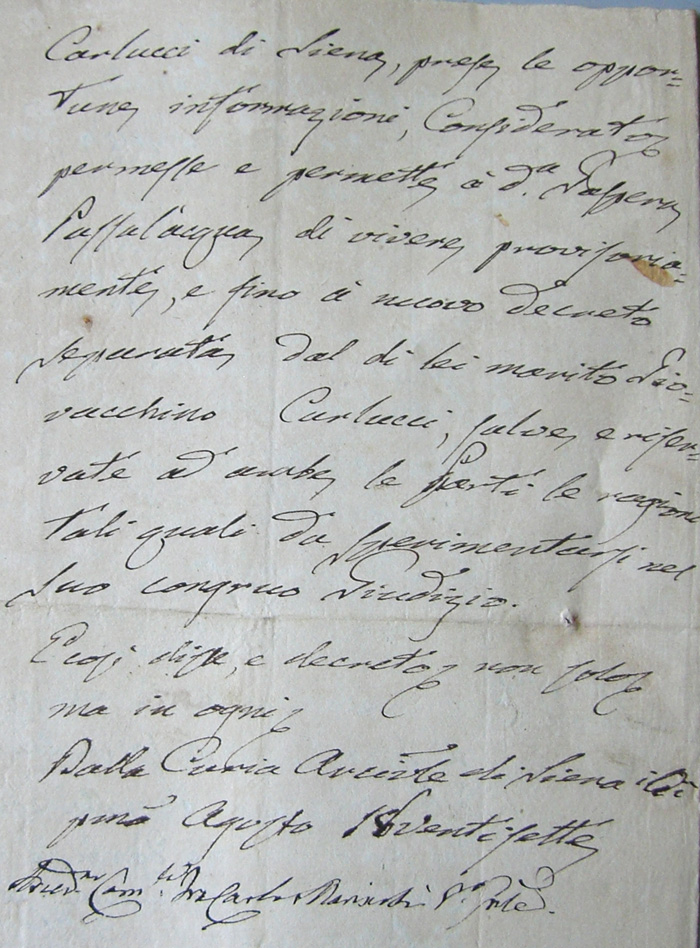 Carlucci di Siena, prese le oppor=
tune informazioni, Considerato
permesse e permette à d.a Gaspera
Passalacqua di vivere provisoria=
mente, e fino à nuovo decreto
separata dal di lei marito Gio=
vacchino Carlucci, salve, e riser=
vate ad ambe le Parti le ragioni
tali quali da sperimentarsi nel
suo congruo Giudizio.
E così disse, e decretò non solo
ma in ogni
Dalla Curia Arcivle di Siena il dì
pmo Agosto 18ventisette
Carlo